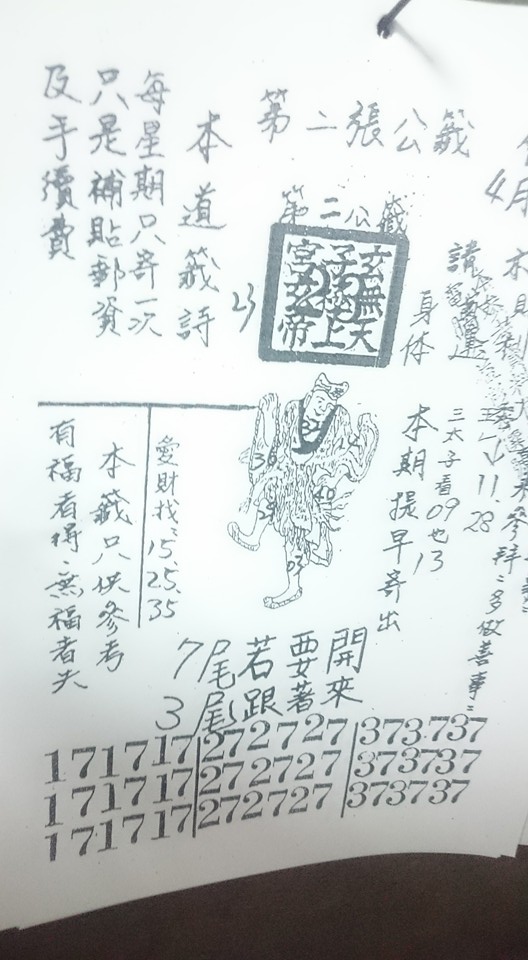 第二張公籤
4月
第二公籤
玄無天
子極上
宮玄帝
身体
本道籤詩
每星期只寄一次
只是補貼郵資
及手續費
三太子看09也13
11.28
參拜:多做善事:
本期提早寄出
36
40
03
愛財找:15.25.35
本籤只供參考
有福者得、無福者失
開來
要著
若跟
7尾
3尾
171717 272727 373737
171717 272727 373737
171717 272727 373737